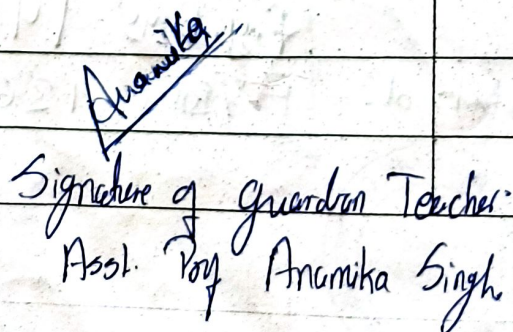 Anamika
Signature of Guardian Teacher:
Asst. Prof Anamika Singh